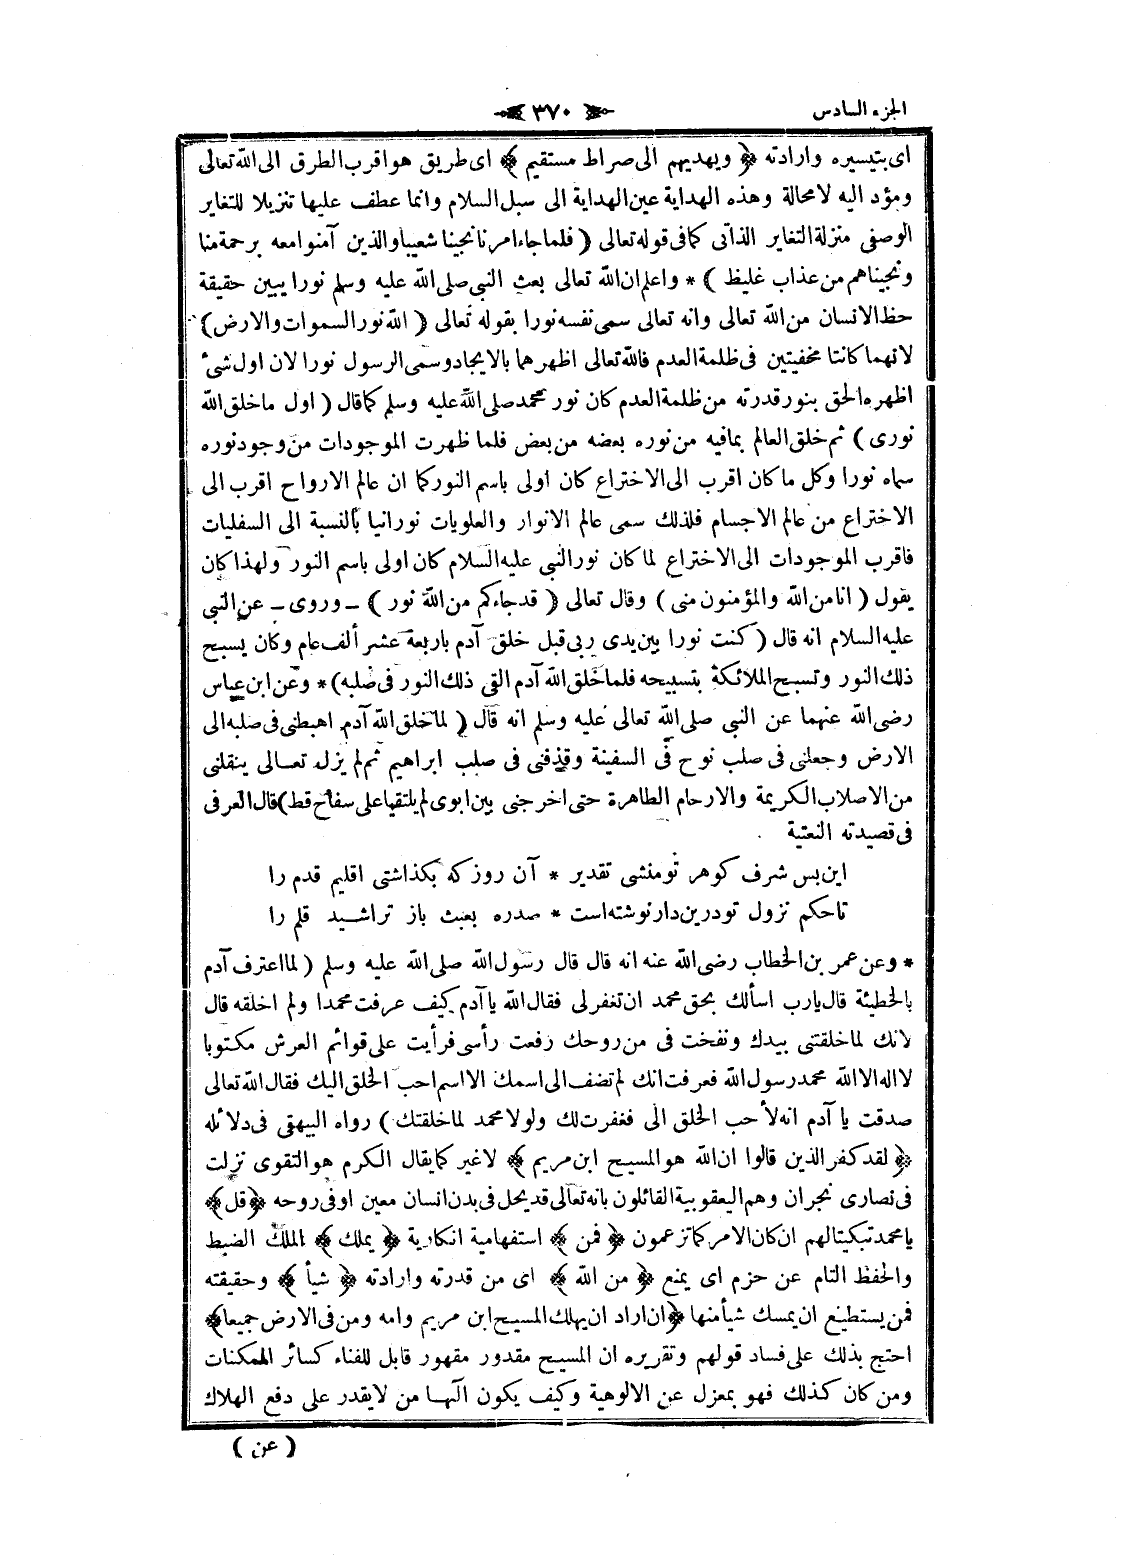 الجزء السادس
٣٧٠
اى بتيسيره وارادته ﴿ ويهديهم الى صراط مستقيم ﴾ اى طريق هو اقرب الطرق الى الله تعالى
ومؤد اليه لا محالة وهذه الهداية عين الهداية الى سبل السلام وانما عطف عليها تنزيلا للتغاير
الوصفى منزلة التغاير الذاتى كما فى قوله تعالى ( فلما جاء امرنا نجينا شعيبا والذين آمنوا معه برحمة منا
ونجيناهم من عذاب غليظ ) * واعلم ان الله تعالى بعث النبى صلى الله عليه وسلم نورا يبين حقيقة
حظ الانسان من الله تعالى وانه تعالى سمى نفسه نورا بقوله تعالى ( الله نور السموات والارض )
لانهما كانتا مخفيتين فى ظلمة العدم فالله تعالى اظهرهما بالايجاد وسمى الرسول نورا لان اول شئ
اظهره الحق بنور قدرته من ظلمة العدم كان نور محمد صلى الله عليه وسلم كما قال ( اول ما خلق الله
نورى ) ثم خلق العالم بما فيه من نوره بعضه من بعض فلما ظهرت الموجودات من وجود نوره
سماه نورا وكل ما كان اقرب الى الاختراع كان اولى باسم النور كما ان عالم الارواح اقرب الى
الاختراع من عالم الاجسام فلذلك سمى عالم الانوار والعلويات نورانيا بالنسبة الى السفليات
فاقرب الموجودات الى الاختراع لما كان نور النبى عليه السلام كان اولى باسم النور ولهذا كان
يقول ( انا من الله والمؤمنون منى ) وقال تعالى ( قد جاءكم من الله نور ) ـ وروى ـ عن النبى
عليه السلام انه قال ( كنت نورا بين يدى ربى قبل خلق آدم باربعة عشر ألف عام وكان يسبح
ذلك النور وتسبح الملائكة بتسبيحه فلما خلق الله آدم القى ذلك النور فى صلبه ) * وعن ابن عباس
رضى الله عنهما عن النبى صلى الله تعالى عليه وسلم انه قال ( لما خلق الله آدم اهبطنى فى صلبه الى
الارض وجعلنى فى صلب نوح فى السفينة وقذفنى فى صلب ابراهيم ثم لم يزل تعالى ينقلنى
من الاصلاب الكريمة والارحام الطاهرة حتى اخرجنى بين ابوى لم يلتقيا على سفاح قط ) قال العرفى
فى قصيدته النعتية
اين بس شرف كوهر تو منشى تقدير * آن روز كه بكذاشتى اقليم قدم را
تا حكم نزول تو درين دار نوشته است * صدره بعبث باز تراشيد قلم را
* وعن عمر بن الخطاب رضى الله عنه انه قال قال رسول الله صلى الله عليه وسلم ( لما اعترف آدم
بالخطيئة قال يارب اسألك بحق محمد ان تغفر لى فقال الله يا آدم كيف عرفت محمدا ولم اخلقه قال
لانك لما خلقتنى بيدك ونفخت فى من روحك رفعت رأسى فرأيت على قوائم العرش مكتوبا
لا اله الا الله محمد رسول الله فعرفت انك لم تضف الى اسمك الا اسم احب الخلق اليك فقال الله تعالى
صدقت يا آدم انه لأحب الخلق الى فغفرت لك ولولا محمد لما خلقتك ) رواه البيهقى فى دلائله
﴿ لقد كفر الذين قالوا ان الله هو المسيح ابن مريم ﴾ لا غير كما يقال الكرم هو التقوى نزلت
فى نصارى نجران وهم اليعقوبية القائلون بانه تعالى قد يحل فى بدن انسان معين او فى روحه ﴿ قل ﴾
يا محمد تبكيتا لهم ان كان الامر كما تزعمون ﴿ فمن ﴾ استفهامية انكارية ﴿ يملك ﴾ الملك الضبط
والحفظ التام عن حزم اى يمنع ﴿ من الله ﴾ اى من قدرته وارادته ﴿ شيأ ﴾ وحقيقته
فمن يستطيع ان يمسك شيأ منها ﴿ ان اراد ان يهلك المسيح ابن مريم وامه ومن فى الارض جميعا ﴾
احتج بذلك على فساد قولهم وتقريره ان المسيح مقدور مقهور قابل للفناء كسائر الممكنات
ومن كان كذلك فهو بمعزل عن الالوهية وكيف يكون الها من لا يقدر على دفع الهلاك
( عن )